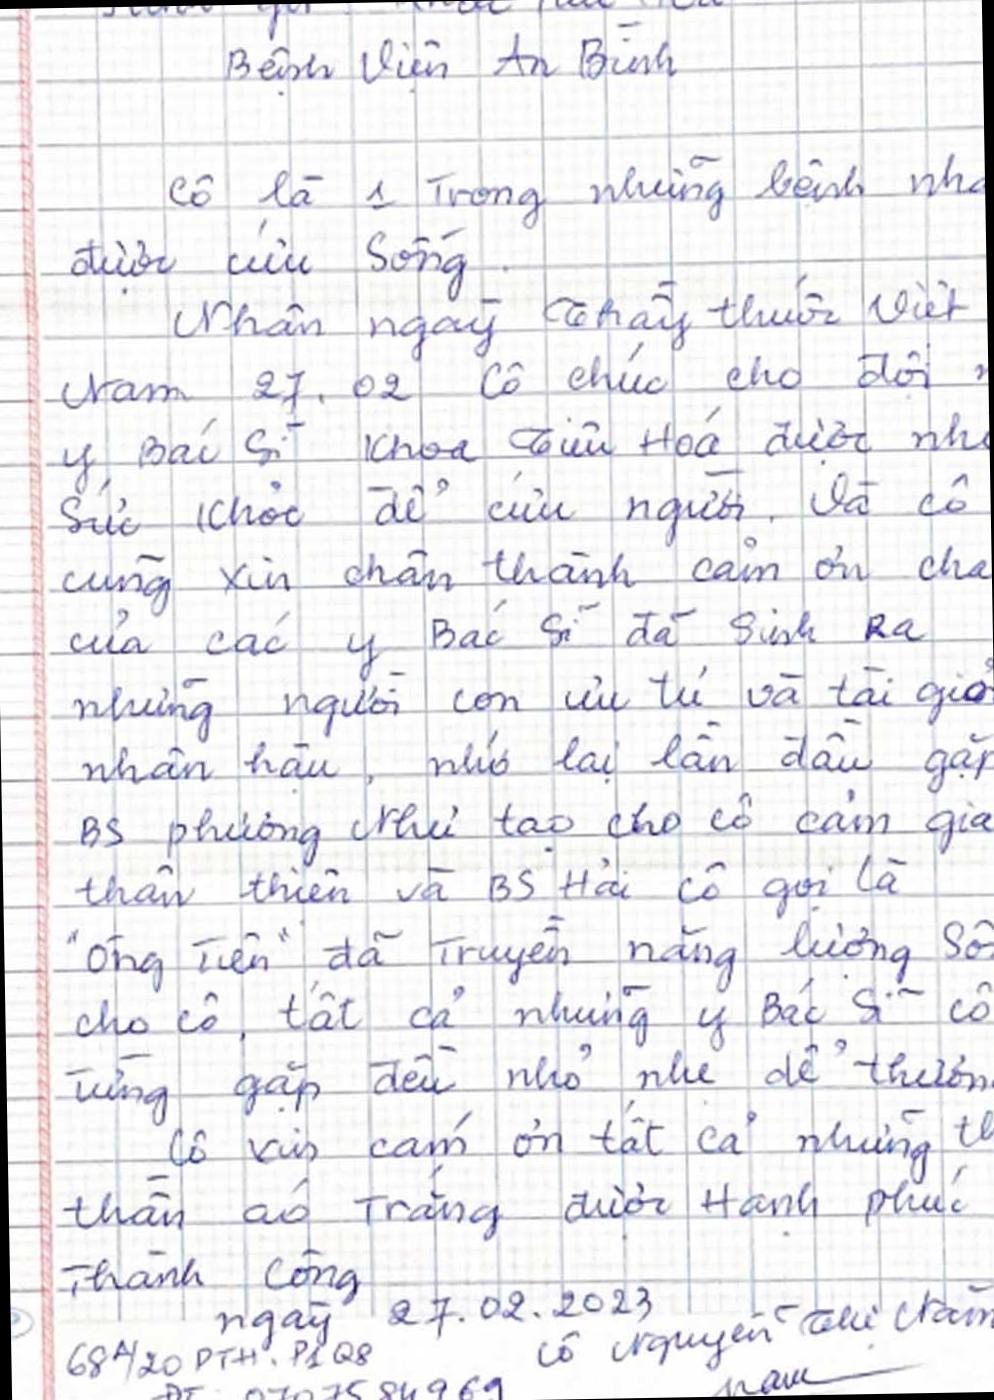 Bệnh Viện An Bình
Cô là 1 Trong những bệnh
được cứu Sống.
Nhân ngày Thầy thuốc Việt
Nam 27.02 Cô chúc cho đội
y Bác Sĩ Khoa Tiêu Hoá được
Sức Khỏe để cứu người. Và cô
cũng xin chân thành cảm ơn cha
của các y Bác Sĩ đã Sinh Ra
những người con ưu tú và tài giỏi
nhân hậu, nhớ lại lần đầu gặp
BS phương Như tạo cho cô cảm
thân thiện và BS Hải cô gọi là
"Ông Tiên" đã Truyền năng lượng
cho cô, tất cả những y Bác Sĩ cô
từng gặp đều nhỏ nhẹ dể thươn
Cô xin cám ơn tất cả những
thần áo Trắng được Hạnh phúc
Thành Công
ngày 27.02.2023
68A/20 DTH. P1 Q8 Cô Nguyễn Thị Năm
ĐT: 0707584969 Nam